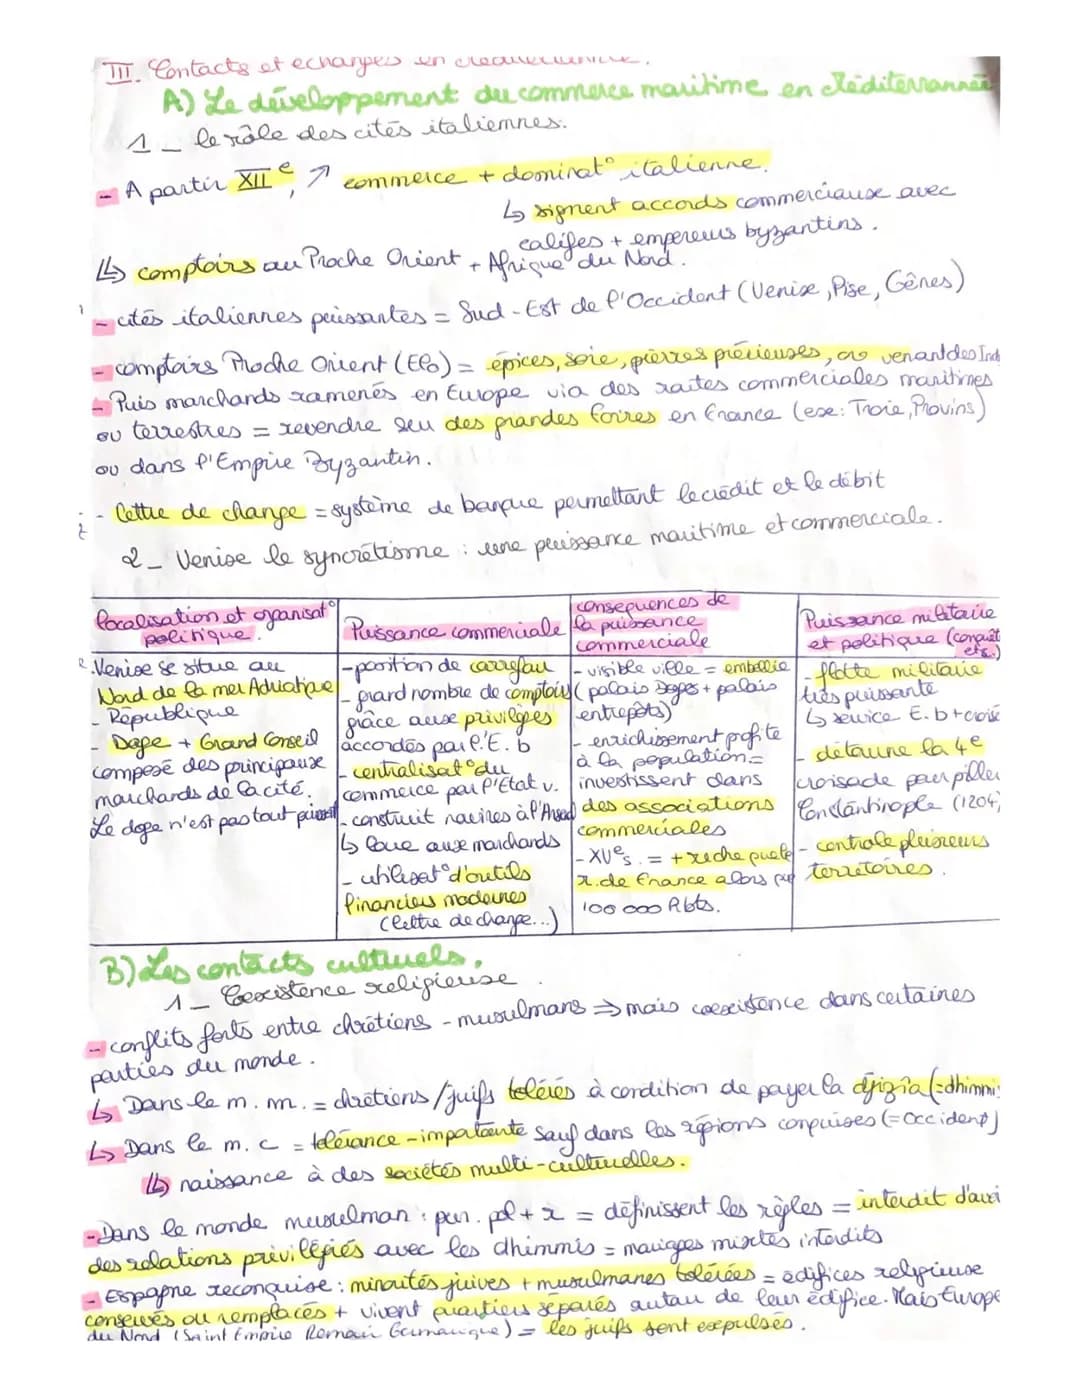 III. Contacts et echanges en mediterrannée.
A) Le développement du commerce maritime en Méditerrannée
1 _ le rôle des cités italiennes.
- A partir XII e, ↗ commerce + dominat° italienne.
↳ signent accords commerciause avec
califes + empereurs byzantins.
↳ comptoirs au Proche Orient + Afrique du Nord.
- cités italiennes puissantes = Sud-Est de l'Occident (Venise, Pise, Gênes)
- comptoirs Proche Orient (EP°) = épices, soie, pierres précieuses, or venant des Ind
- Puis marchands ramenés en Europe via des routes commerciales maritimes
ou terrestres = revendre su des grandes foires en France (exe: Troie, Provins)
ou dans l'Empire Byzantin.
- lettre de change = système de banque permettant le crédit et le débit
2 _ Venise le syncrétisme : une puissance maritime et commerciale.
localisation et organisat° politique.
Puissance commerciale
conséquences de la puissance commerciale
Puissance militaire et politique (conquêt etc.)
. Venise se situe au
Nord de la mer Adriatique
- République
- Doge + Grand Conseil
composé des principause
marchands de la cité.
Le doge n'est pas tout puissant
- position de carrefou
- grand nombre de comptoirs
grâce ause privilèges
accordés par l'E. b
- centralisat° du
commerce par l'Etat v.
- construit navires à l'Arsenal
↳ loue ause marchands
- utilisat° d'outils
financiers modernes
(lettre de change...)
- visible ville = embellie
(palais Doges + palais
entrepôts)
- enrichissement profite
à la population =
investissent dans
des associations
commerciales
- XVe s. = + riche que le
r. de France alors que
100 000 hbts.
- flotte militaire
très puissante
↳ service E. b + croisé
- détourne la 4e
croisade pour piller
Constantinople (1204)
- contrôle plusieurs
territoires.
B) Les contacts culturels.
1 _ Coexistence religieuse
- conflits forts entre chrétiens - musulmans ⇒ mais coexistence dans certaines
parties du monde.
↳ Dans le m. m. = chrétiens/juifs tolérés à condition de payer la djizîa (=dhimmis
↳ Dans le m. c = tolérance - importante sauf dans les régions conquises (= Occident)
↳ naissance à des sociétés multi-culturelles.
- Dans le monde musulman : pvr. pol + r = définissent les règles = interdit d'avoi
des relations privilégiés avec les dhimmis = mariages mixtes interdits
- Espagne reconquise : minorités juives + musulmanes tolérées = édifices religieuse
conservés ou remplacés + vivent quartiers séparés autour de leur édifice. Mais Europe
du Nord (Saint Empire Romain Germanique) = les juifs sont expulsés.